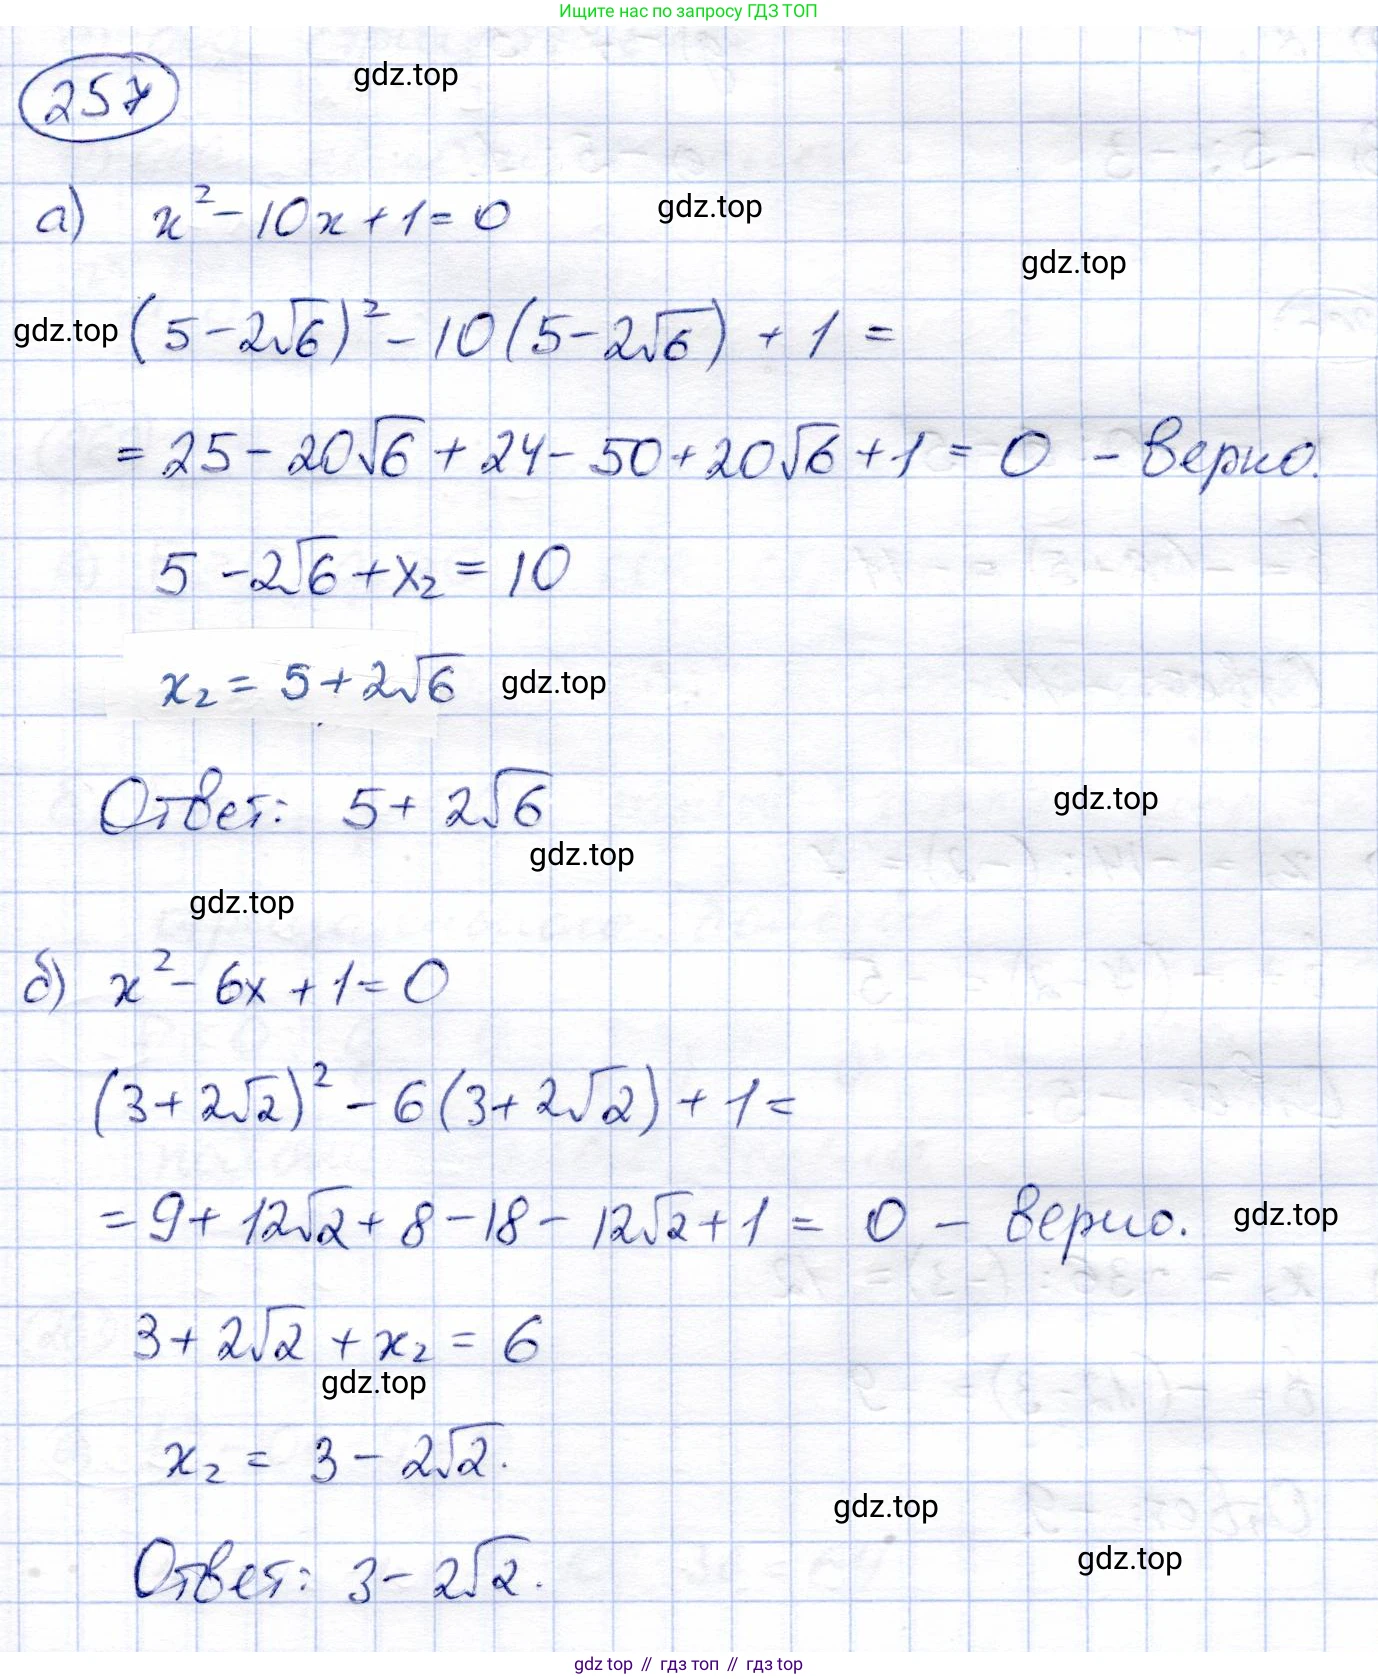 Ищите нас по запросу ГДЗ ТОП
257
gdz.top
а) x² - 10x + 1 = 0
gdz.top
gdz.top
gdz.top
(5 - 2√6)² - 10(5 - 2√6) + 1 =
= 25 - 20√6 + 24 - 50 + 20√6 + 1 = 0 - верно.
5 - 2√6 + x₂ = 10
x₂ = 5 + 2√6
gdz.top
Ответ: 5 + 2√6
gdz.top
gdz.top
gdz.top
б) x² - 6x + 1 = 0
(3 + 2√2)² - 6(3 + 2√2) + 1 =
= 9 + 12√2 + 8 - 18 - 12√2 + 1 = 0 - верно.
gdz.top
3 + 2√2 + x₂ = 6
gdz.top
x₂ = 3 - 2√2.
gdz.top
gdz.top
Ответ: 3 - 2√2.
gdz top // гдз топ // гдз top